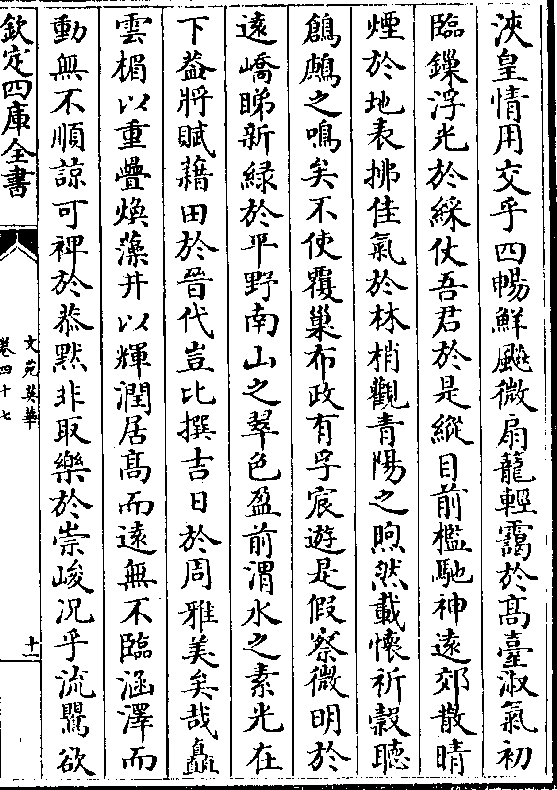 浹皇情用交乎四暢鮮飈微扇籠輕靄於髙臺淑氣初
臨鏁浮光於綵仗吾君於是縱目前檻馳神遠郊散晴
煙於地表拂佳氣於林梢觀青陽之煦然載懷祈穀聽
鶬鷓之鳴矣不使覆巢布政有孚宸遊是假察微明於
遠嶠睇新緑於平野南山之翠色盈前渭水之素光在
下益將賦藉田於晉代豈比撰吉日於周雅美矣哉矗
雲楣以重疊煥藻井以輝潤居髙而遠無不臨涵澤而
動無不順諒可裨於恭默非取樂於崇峻况乎流鸎欲
欽定四庫全書
文苑英華
卷四十七
十一